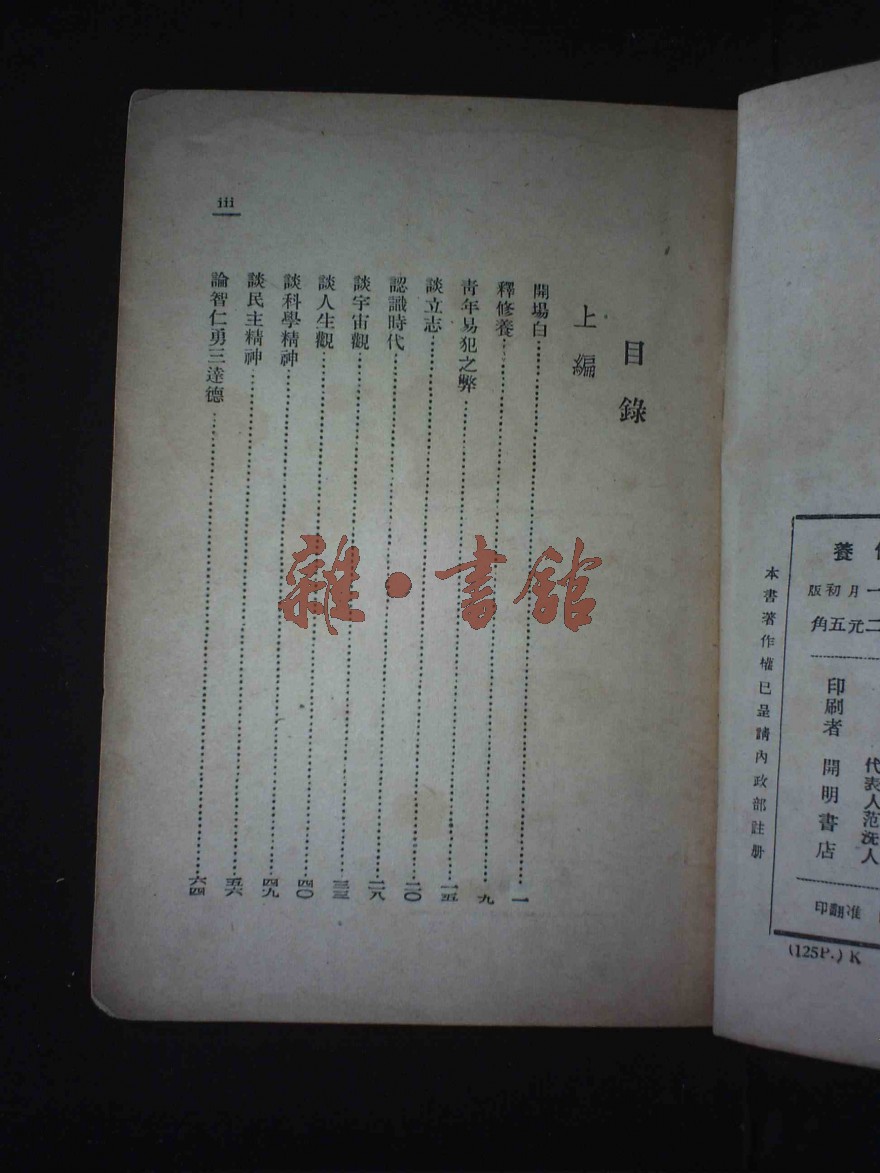 目錄
上編
開場白 一
釋修養 九
靑年易犯之弊 一五
談立志 二〇
認識時代 二八
談宇宙觀 三三
談人生觀 四〇
談科學精神 四九
談民主精神 五六
論智仁勇三達德 六四
iii
雜·書館
養
一月初版
二元五角
代表人范洗人
印刷者 開明書店
准翻印
本書著作權已呈請內政部註册
(125P.) K